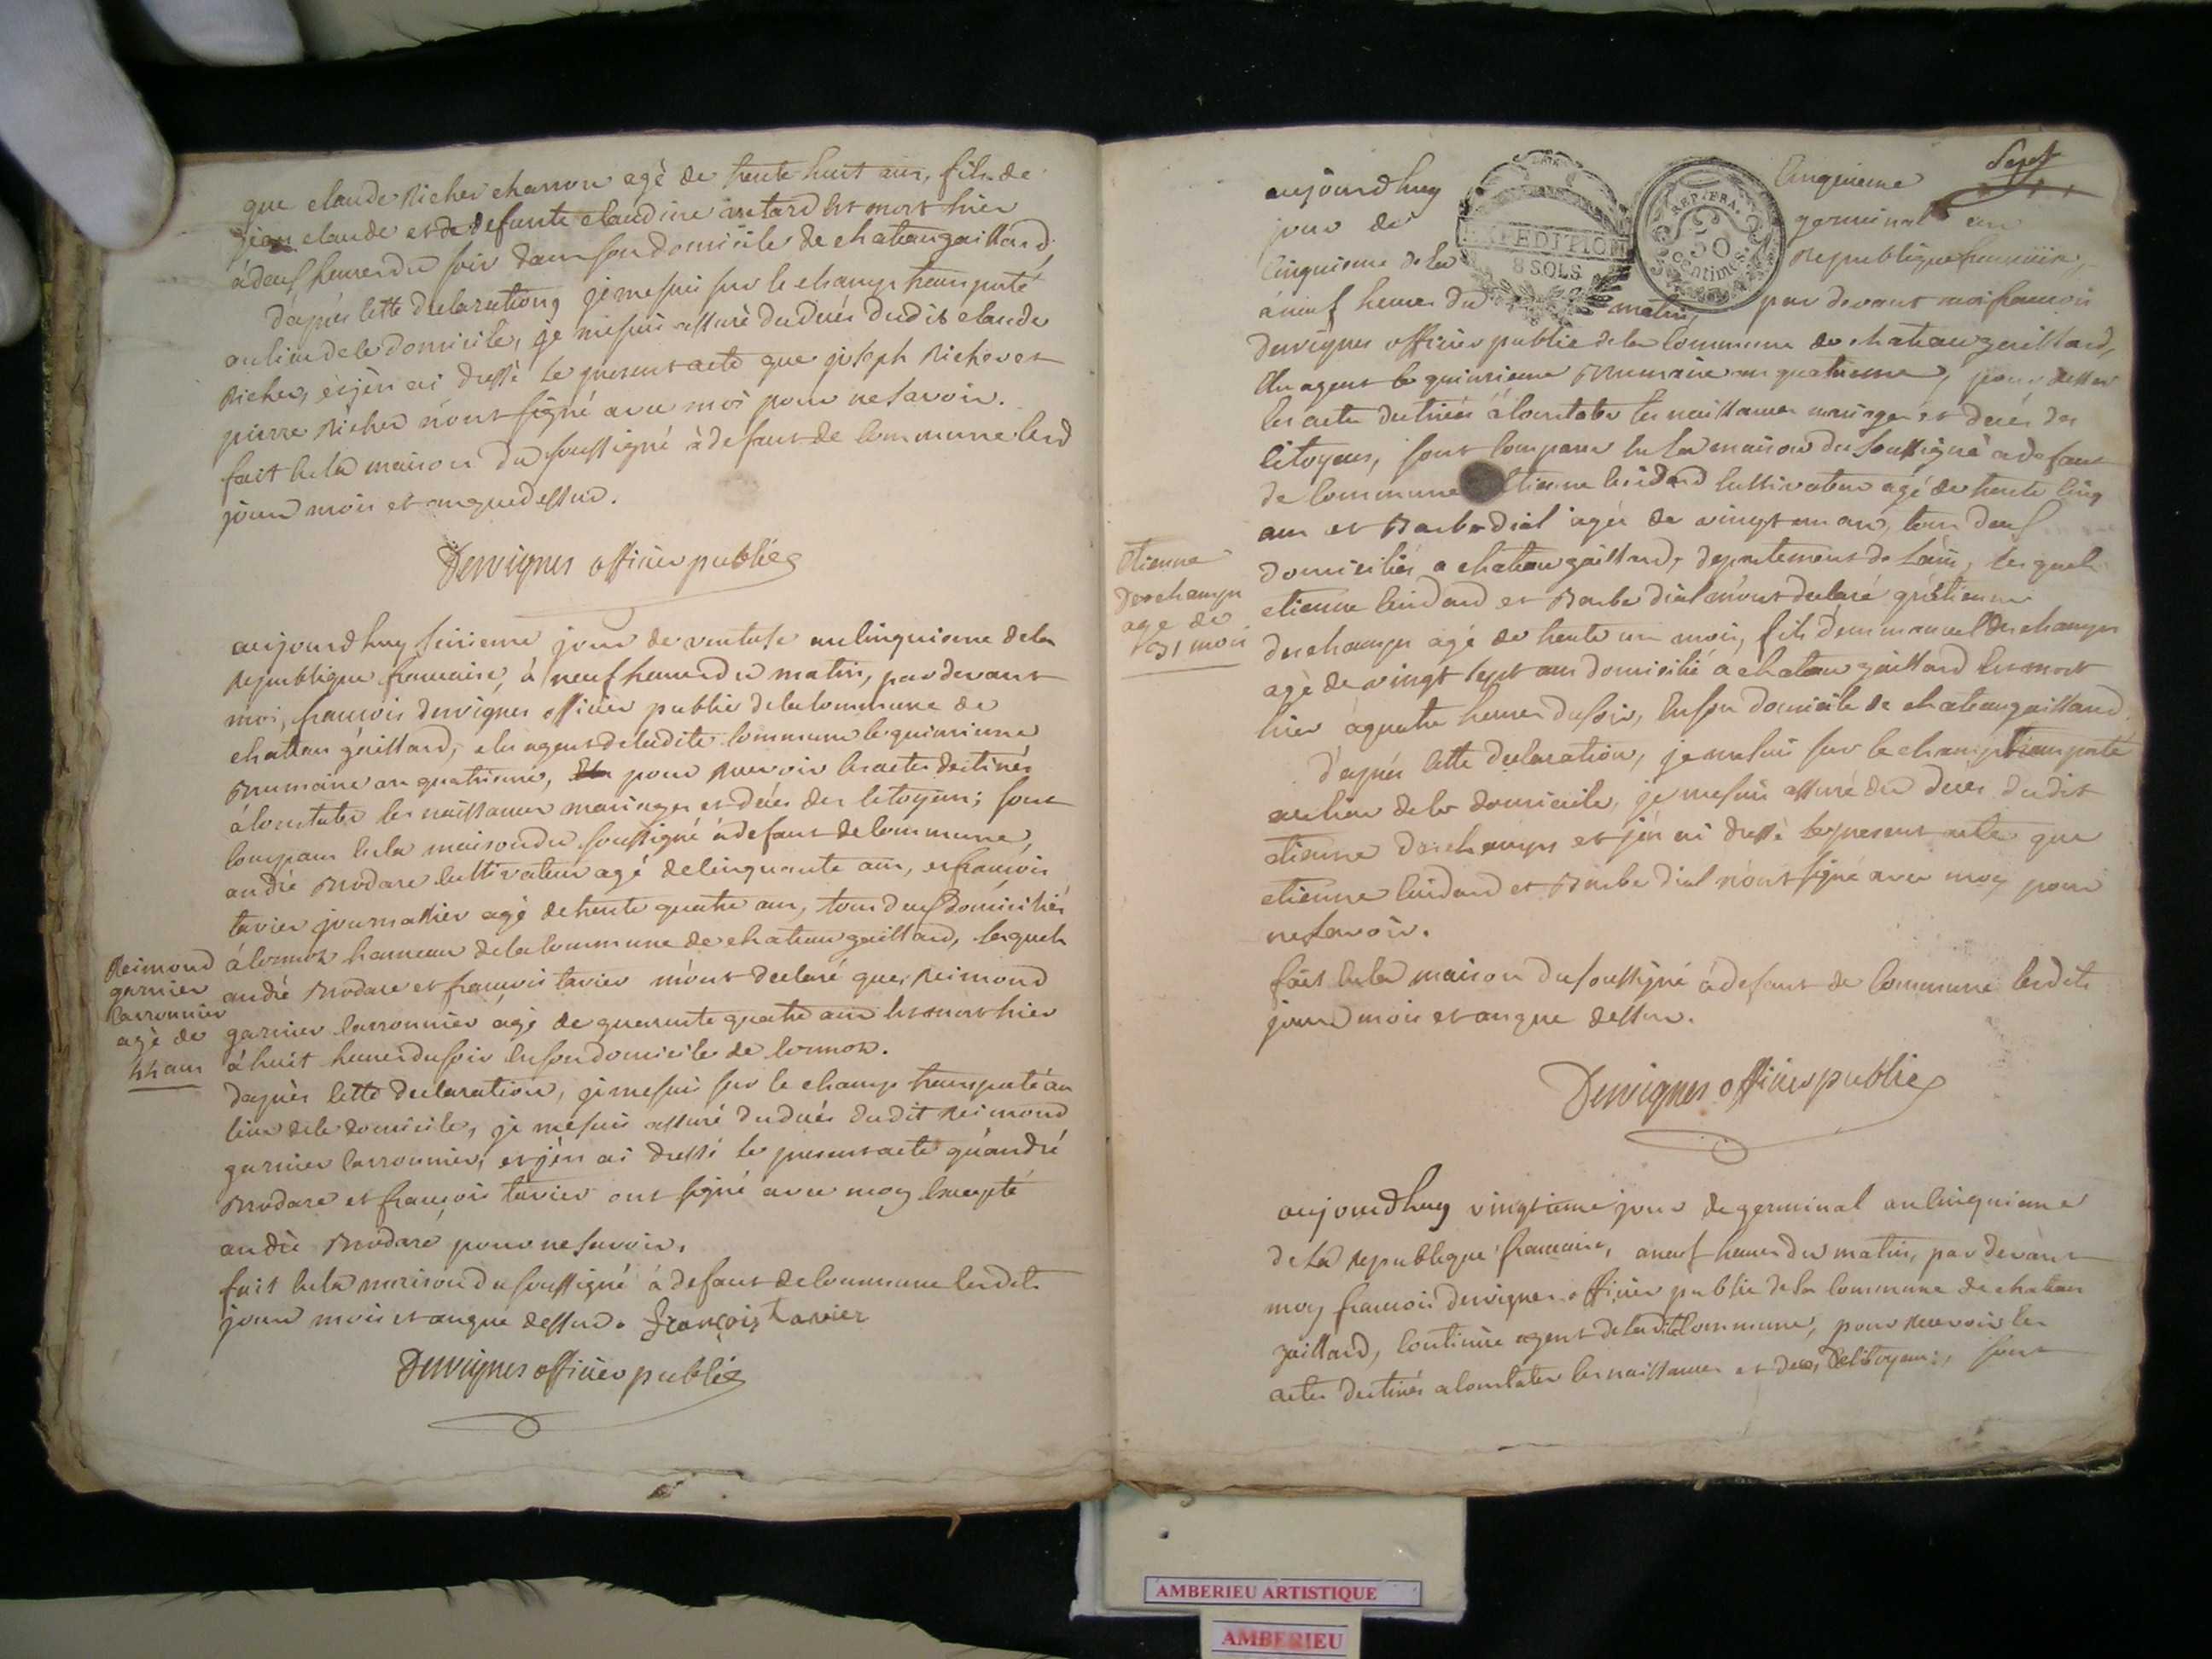 que claude Richer charron agé de trente huit ans, fils de
jean claude et de defunte claudine est mort hier
à deuf heures du soir dans son domicile de chateaugaillard,
d'après cette declaration, je me suis sur le champ transporté
au lieu de ce domicile, je me suis assuré du dués dudit claude
Richer, et j'en ai dressé le present acte que joseph Richer et
pierre Richer n'ont signé avec moi pour ne savoir.
fait en la maison du soussigné à defaut de commune lesd
jour mois et an que dessus.
Dervignes officier public
aujourdhuy seizieme jour de ventose an cinquieme de la
Republique francaise, à neuf heures du matin, par devant
moi, francois dervignes officier public de la commune de
chateau gaillard, elu agent de ladite commune le quinzieme
Brumaire an quatrieme, pour recevoir les actes destinés
à constater les naissances mariages et décés des citoyens; sont
comparus en la maison du soussigné à defaut de commune,
andré Brodare cultivateur agé de cinquante ans, et francois
tavier journallier agé de trente quatre ans, tous deuf domiciliés
à cormoz hameau de la commune de chateau gaillard, lesquels
andré Brodare et francois tavier m'ont declaré que, Reimond
garnier carronnier agé de quarente quatre ans est mort hier
à huit heures du soir en son domicile de cormoz.
Reimond
garnier
carronnier
agé de
44 ans
d'après cette declaration, je me suis sur le champ transporté au
lieu de ce domicile, je me suis assuré du dués dudit Reimond
garnier carronnier, et j'en ai dressé le present acte qu'andré
Brodare et francois tavier ont signé avec moy excepté
andré Brodare pour ne savoir.
fait en la maison du soussigné à defaut de commune lesdits
jour mois et an que dessus. François tavier
Dervignes officier public
Sept
aujourdhuy cinquieme
jour de germinal an
cinquieme de la Republique francaise,
à neuf heures du matin, par devant moi francois
dervignes officier public de la commune de chateau gaillard,
elu agent le quinzieme Brumaire an quatrieme, pour dresser
les actes destinés à constater les naissances mariages et décés des
citoyens, sont comparus en la maison du soussigné à defaut
de commune etienne cultivateur agé de trente cinq
ans et Barbe dial agée de vingt un ans, tous deuf
domiciliés à chateau gaillard, departement de l'ain, lesquels
etienne et Barbe dial m'ont declaré qu'etienne
deschamps agé de trente un mois, fils d'emmanuel deschamps
agé de vingt sept ans domicilié à chateau gaillard est mort
hier à quatre heures du soir, en son domicile de chateaugaillard.
etienne
deschamps
age de
31 mois
d'après cette declaration, je me suis sur le champ transporté
au lieu de ce domicile, je me suis assuré du deces dudit
etienne deschamps et j'en ai dressé le present acte que
etienne et Barbe dial n'ont signé avec moy pour
ne savoir.
fait en la maison du soussigné à defaut de commune lesdits
jour mois et an que dessus.
Dervignes officier public
aujourdhuy vingtieme jour de germinal an cinquieme
de la Republique francaise, à neuf heures du matin, par devant
moy francois dervignes officier public de la commune de chateau
gaillard, continué agent de ladite commune, pour recevoir les
actes destinés a constater les naissances et deces, de citoyens, sont
EXPEDITION
8 SOLS
REP. FRA.
50
centimes.
AMBERIEU ARTISTIQUE
AMBERIEU